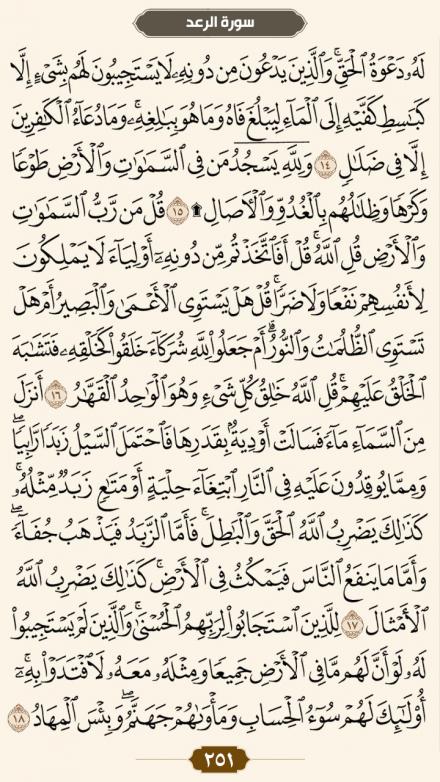 سورة الرعد
لَهُۥ دَعْوَةُ ٱلْحَقِّ ۖ وَٱلَّذِينَ يَدْعُونَ مِن دُونِهِۦ لَا يَسْتَجِيبُونَ لَهُم بِشَىْءٍ إِلَّا
كَبَـٰسِطِ كَفَّيْهِ إِلَى ٱلْمَآءِ لِيَبْلُغَ فَاهُ وَمَا هُوَ بِبَـٰلِغِهِۦ ۚ وَمَا دُعَآءُ ٱلْكَـٰفِرِينَ
إِلَّا فِى ضَلَـٰلٍ ١٤ وَلِلَّهِ يَسْجُدُ مَن فِى ٱلسَّمَـٰوَٰتِ وَٱلْأَرْضِ طَوْعًا
وَكَرْهًا وَظِلَـٰلُهُم بِٱلْغُدُوِّ وَٱلْـَٔاصَالِ ۩ ١٥ قُلْ مَن رَّبُّ ٱلسَّمَـٰوَٰتِ
وَٱلْأَرْضِ قُلِ ٱللَّهُ ۚ قُلْ أَفَٱتَّخَذْتُم مِّن دُونِهِۦٓ أَوْلِيَآءَ لَا يَمْلِكُونَ
لِأَنفُسِهِمْ نَفْعًا وَلَا ضَرًّا ۚ قُلْ هَلْ يَسْتَوِى ٱلْأَعْمَىٰ وَٱلْبَصِيرُ أَمْ هَلْ
تَسْتَوِى ٱلظُّلُمَـٰتُ وَٱلنُّورُ ۗ أَمْ جَعَلُوا۟ لِلَّهِ شُرَكَآءَ خَلَقُوا۟ كَخَلْقِهِۦ فَتَشَـٰبَهَ
ٱلْخَلْقُ عَلَيْهِمْ ۚ قُلِ ٱللَّهُ خَـٰلِقُ كُلِّ شَىْءٍ وَهُوَ ٱلْوَٰحِدُ ٱلْقَهَّـٰرُ ١٦ أَنزَلَ
مِنَ ٱلسَّمَآءِ مَآءً فَسَالَتْ أَوْدِيَةٌۢ بِقَدَرِهَا فَٱحْتَمَلَ ٱلسَّيْلُ زَبَدًا رَّابِيًا ۚ
وَمِمَّا يُوقِدُونَ عَلَيْهِ فِى ٱلنَّارِ ٱبْتِغَآءَ حِلْيَةٍ أَوْ مَتَـٰعٍ زَبَدٌ مِّثْلُهُۥ ۚ
كَذَٰلِكَ يَضْرِبُ ٱللَّهُ ٱلْحَقَّ وَٱلْبَـٰطِلَ ۚ فَأَمَّا ٱلزَّبَدُ فَيَذْهَبُ جُفَآءً ۖ
وَأَمَّا مَا يَنفَعُ ٱلنَّاسَ فَيَمْكُثُ فِى ٱلْأَرْضِ ۚ كَذَٰلِكَ يَضْرِبُ ٱللَّهُ
ٱلْأَمْثَالَ ١٧ لِلَّذِينَ ٱسْتَجَابُوا۟ لِرَبِّهِمُ ٱلْحُسْنَىٰ ۚ وَٱلَّذِينَ لَمْ يَسْتَجِيبُوا۟
لَهُۥ لَوْ أَنَّ لَهُم مَّا فِى ٱلْأَرْضِ جَمِيعًا وَمِثْلَهُۥ مَعَهُۥ لَٱفْتَدَوْا۟ بِهِۦٓ ۚ
أُو۟لَـٰٓئِكَ لَهُمْ سُوٓءُ ٱلْحِسَابِ وَمَأْوَىٰهُمْ جَهَنَّمُ ۖ وَبِئْسَ ٱلْمِهَادُ ١٨
٢٥١